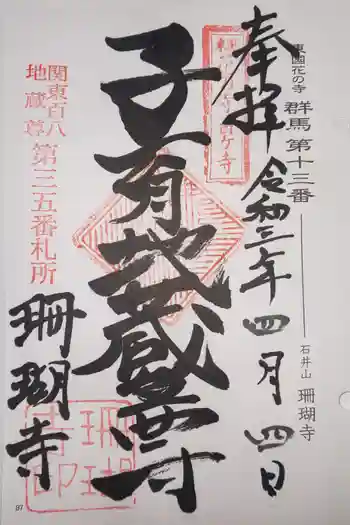 東国花の寺
群馬 第十三番
石井山 珊瑚寺
奉拝
令和三年四月四日
子育地蔵尊
関東百八
地蔵尊
第三五番札所
珊瑚寺
珊瑚
寺印
97